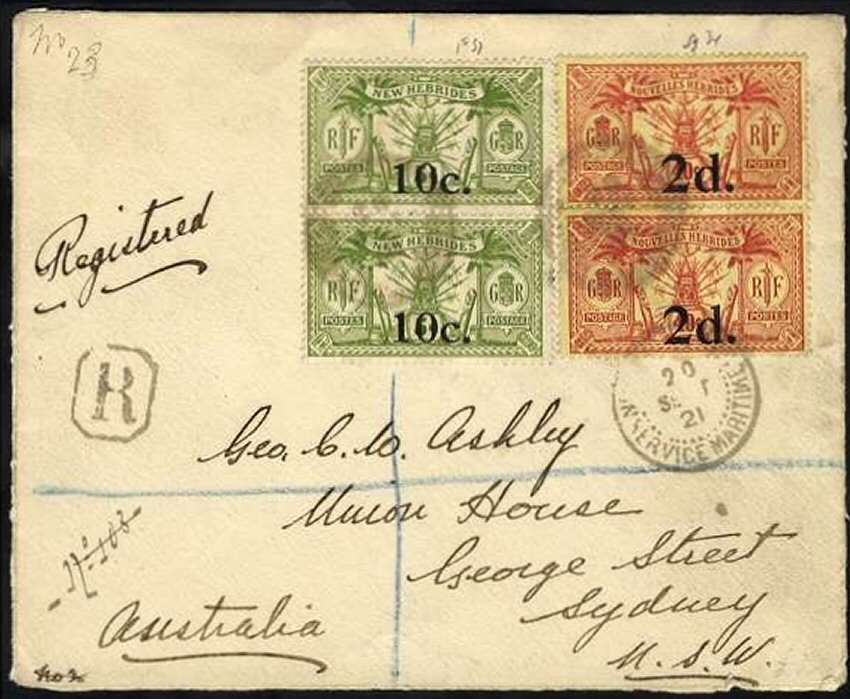 No
23
NEW HEBRIDES
RF GR
POSTES POSTAGE
10c.
NOUVELLES HEBRIDES
GR RF
POSTAGE POSTES
2d.
NEW HEBRIDES
RF GR
POSTES POSTAGE
10c.
NOUVELLES HEBRIDES
GR RF
POSTAGE POSTES
2d.
Registered
R
20
21
SERVICE MARITIME
Geo. C. W. Ashley
Union House
George Street
Sydney
N.S.W.
Australia